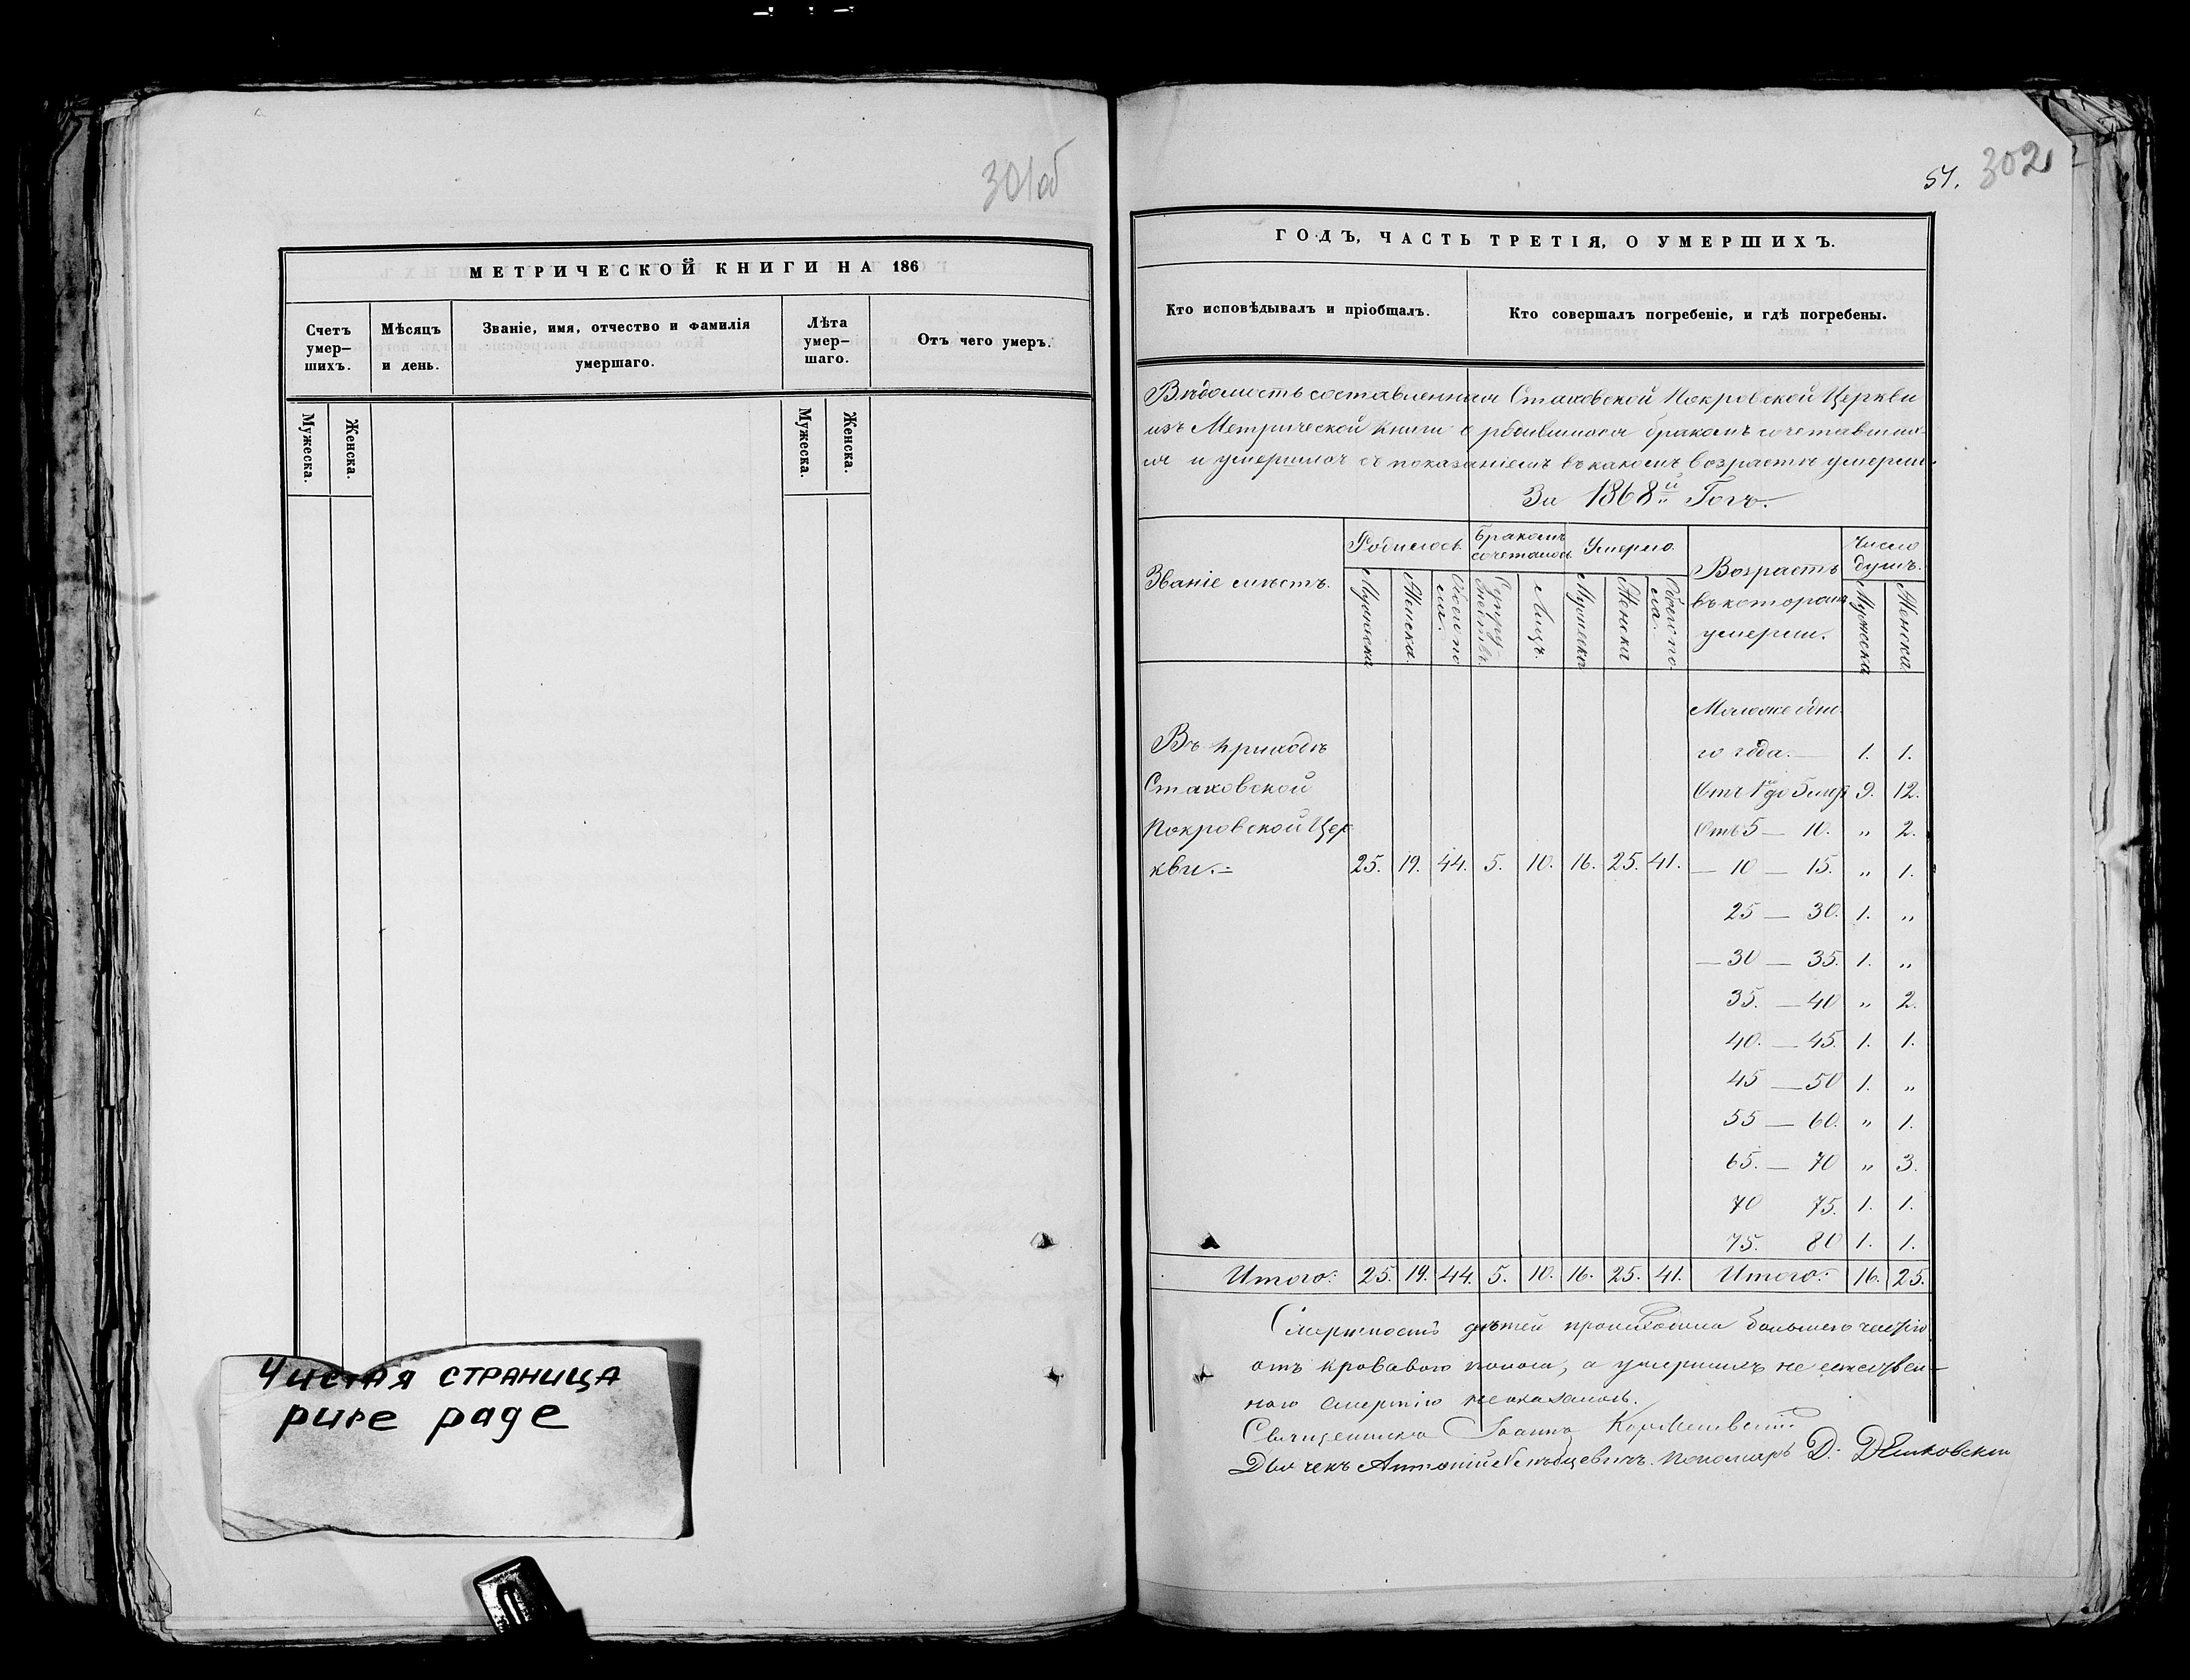 301об
МЕТРИЧЕСКОЙ КНИГИ НА 186
Счетъ умер–шихъ.
Мѣсяцъ и день.
Званіе, имя, отчество и фамилія умершаго.
Лѣта умер–шаго.
Отъ чего умеръ.
Мужеска.
Женска.
Мужеска.
Женска.
Чистая страница
pure page
51. 302
ГОДЪ, ЧАСТЬ ТРЕТІЯ, О УМЕРШИХЪ.
Кто исповѣдывалъ и пріобщалъ.
Кто совершалъ погребеніе, и гдѣ погребены.
Вѣдомость составленная Стаховской Покровской Церкви
изъ Метрической книги о родившихся бракомъ сочетавших-
ся и умершихъ съ показаніемъ въ какомъ возрастѣ умерли.
За 1868й Годъ.
Званіе мѣстъ.
Родилось.
Бракомъ сочеталось
Умерло.
Возрастъ въ которомъ умерли.
Число душъ.
Мужеска
Женска.
Обоего пола.
Супружествъ.
Лицъ.
Мужеска
Женска
Обоего пола.
Мужеска
Женска.
Моложе одно-
го года.— 1. 1.
Въ приходѣ
Стаховской
Покровской Цер
кви.= 25. 19. 44. 5. 10. 16. 25. 41.
Отъ 1го до 5ти 9. 12.
Отъ 5 — 10. „ 2.
— 10 — 15. „ 1.
25 — 30. 1. „
— 30 — 35. 1. „
35. — 40 „ 2.
40. — 45. 1. 1.
45 — 50 1. „
55 — 60. „ 1.
65. — 70 „ 3.
70 75. 1. 1.
75. 80 1. 1.
Итого: 25. 19. 44. 5. 10. 16. 25. 41. Итого: 16. 25.
Смертность дѣтей происходила большею частію
отъ кроваваго поноса, а умершихъ не естествен-
ною смертію не оказалось.
Священникъ Іоаннъ
Дьячекъ Антоній Пономарь Д.